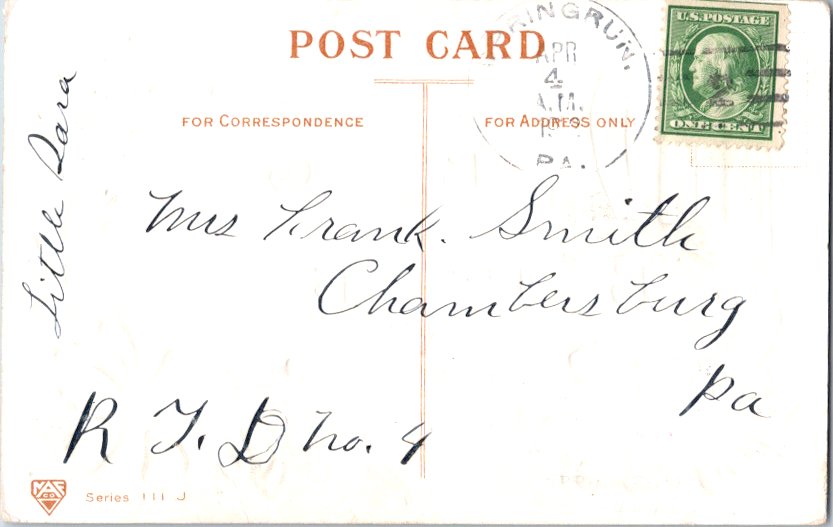 POST CARD
RINGRUN.
APR
4
A.M.
PA.
U.S. POSTAGE
ONE CENT
FOR CORRESPONDENCE
FOR ADDRESS ONLY
Little Sara
Mrs Frank. Smith
Chambersburg
Pa
R F. D no. 4
Series III J